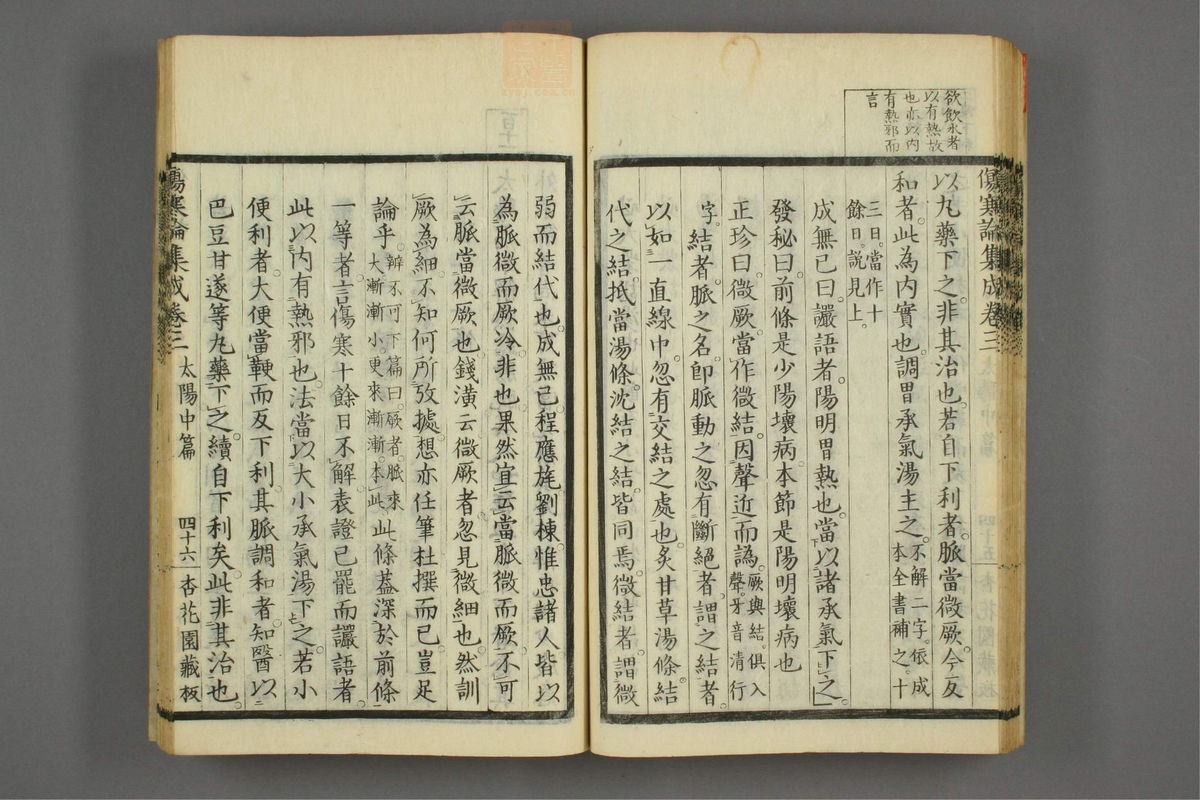 欲飲水者
以有熱故
也亦以内
有熱邪而
言
傷寒論集成卷三
以丸藥下之。非其治也。若自下利者。脈當微厥。今反
和者。此為内實也。調胃承氣湯主之。不解二字。依成本全書補之。十
三日。當作十餘日。說見上。
成無已曰。讝語者。陽明胃熱也。當以諸承氣下之。
發秘曰。前條是少陽壞病。本節是陽明壞病也
正珍曰。微厥。當作微結。因聲近而譌。厥與結。俱入聲。牙音清行
字。結者。脈之名。卽脈動之忽有斷絕者。謂之結者。
以如一直線中。忽有交結之處也。炙甘草湯條結
代之結。抵當湯條沈結之結。皆同焉。微結者。謂微
弱而結代也。成無已。程應旄。劉棟。惟忠諸人。皆以
為脈微而厥冷。非也。果然。宜云當脈微而厥。不可
云脈當微厥也。錢潢云。微厥者。忽見微細也。然訓
厥為細。不知何所攷據。想亦任筆杜撰而已。豈足
論乎。辨不可下篇曰。厥者。脈來大。漸漸小。更來漸漸。本此。此條蓋深於前條
一等者。言傷寒十餘日不解。表證已罷而讝語者。
此以内有熱邪也。法當以大小承氣湯下之。若小
便利者。大便當鞕。而反下利。其脈調和者。知醫以
巴豆甘遂等丸藥下之。續自下利矣。此非其治也。
傷寒論集成卷三 太陽中篇 四十六 杏花園藏板